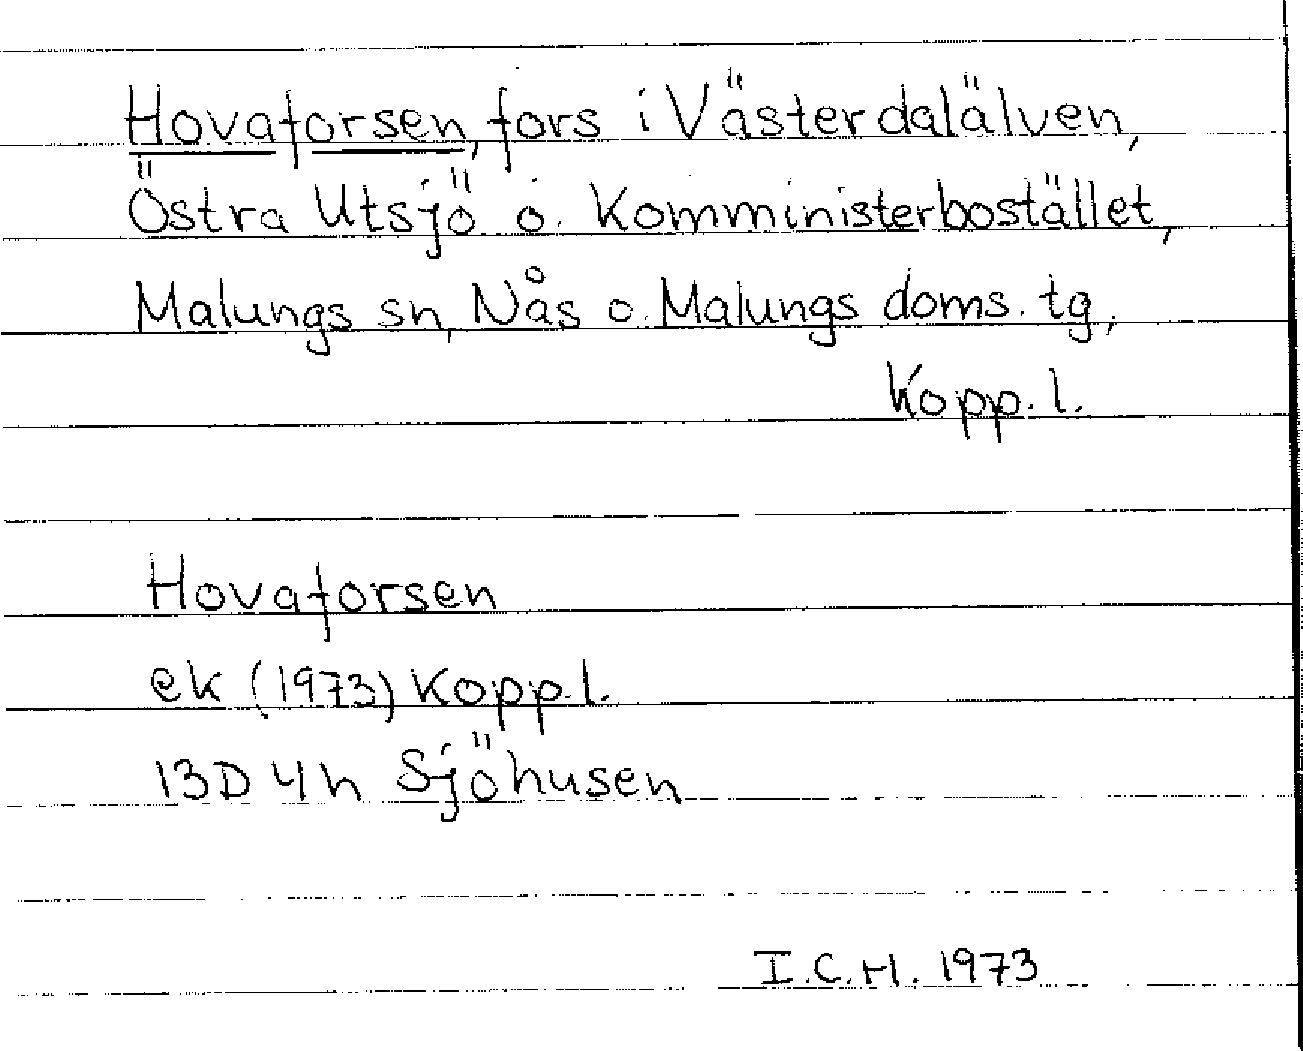 Hovaforsen, fors i Västerdalälven,
Östra Utsjö o. Komministerbostället,
Malungs sn, Nås o. Malungs doms. tg,
Kopp. l.
Hovaforsen
ek (1973) Kopp. l.
13D 4h Sjöhusen
I.C.H. 1973